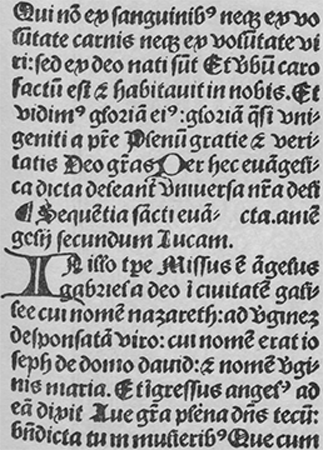 Qui nõ eꝫ sanguinibꝰ neqꝫ ex vo
lũtate carnis neqꝫ ex volũtate vi
ri: sed ex deo nati sũt Et v̓bũ caro
factũ est ⁊ habitauit in nobis. Et
vidimꝰ gloriã eiꝰ: gloriã q̃si vni-
geniti a pr̃e Plenũ gratie ⁊ veri-
tatis Deo gr̃as Per hec euãgeli-
ca dicta deleant̃ v̓niuersa nr̃a deli
¶ Sequẽtia sãcti euã- cta. amẽ
gelij secundum Lucam.
IN illo tꝑe Missus ẽ ãgelus
gabriel a deo ĩ ciuitatẽ gali-
lee cui nomẽ nazareth: ad v̓ginẽ
desponsatã viro: cui nomẽ erat io
seph de domo dauid: ⁊ nomẽ v̓gi-
nis maria. Et ĩgressus angelꝰ ad
eã dixit Aue gr̃a plena dñs tecũ:
bñdicta tu in mulieribꝰ Que cum